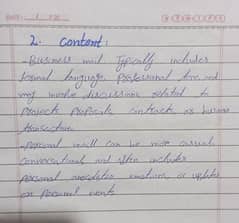 2. Content:
- Business mail Typically includes
formal language, Professional tone, and
may involve discussions related to
Projects Proposals, contracts, or business
transaction
- Personal mail can be more casual
conversational and often includes
Personal anecdotes emotions, or updates
on Personal events